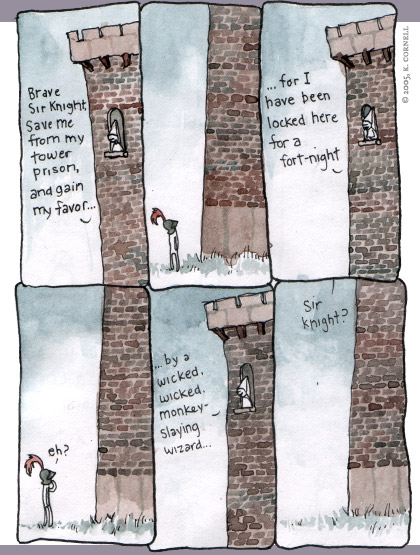 Brave
Sir Knight
Save me
from my
tower
prison,
and gain
my favor...
...for I
have been
locked here
for a
fort-night
© 2005, K. CORNELL
eh?
...by a
wicked,
wicked,
monkey-
slaying
wizard...
Sir
Knight?